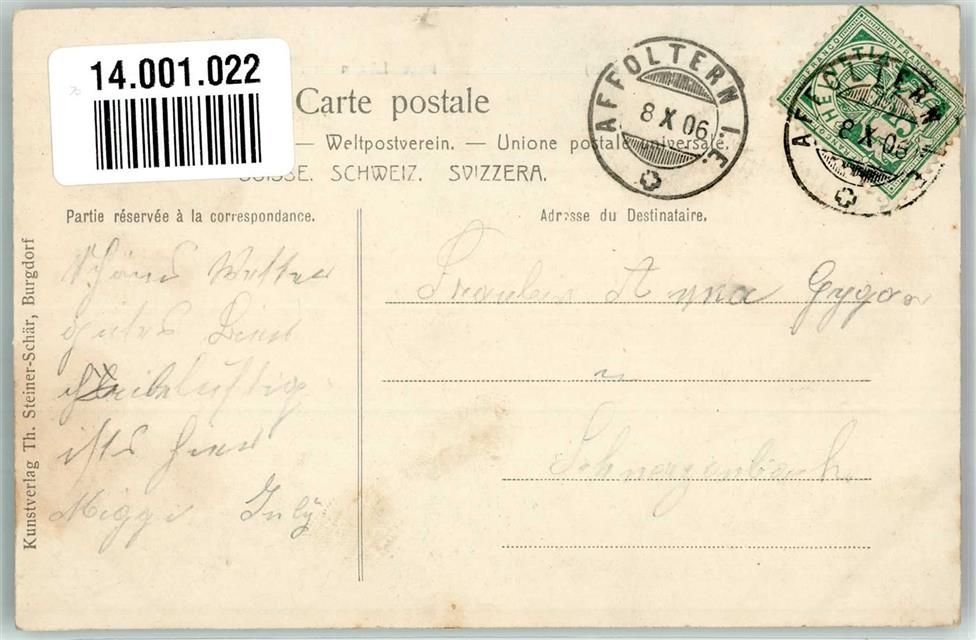 14.001.022
Carte postale
— Weltpostverein. — Unione postale universale.
SUISSE. SCHWEIZ. SVIZZERA.
AFFOLTERN I. E.
8 X 06
FRANCO FRANCO
HELVETIA
AFFOLTERN
8 X 06
Partie réservée à la correspondance.
Adresse du Destinataire.
Schönes Wetter
gutes Bier
ists hier
Miggi
Fräulein Anna Gygax
in
Kunstverlag Th. Steiner-Schär, Burgdorf